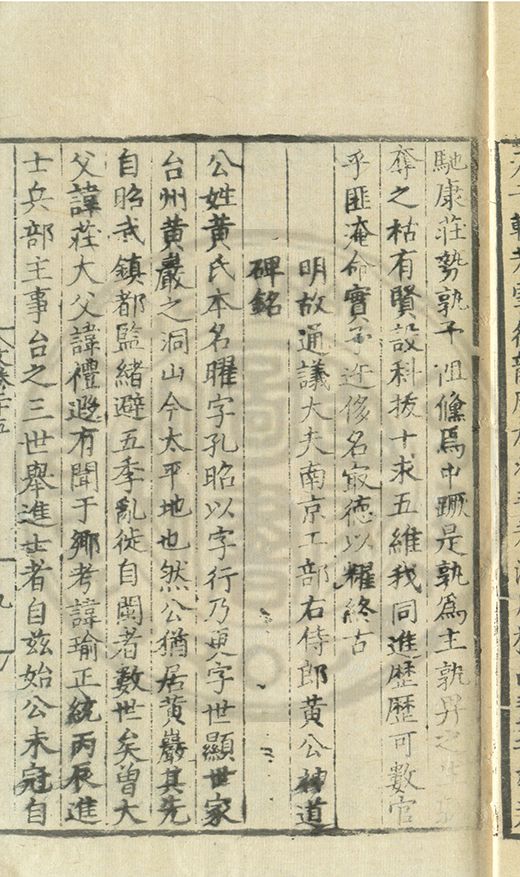 馳康莊勢孰予沮儵焉中蹶是孰為主孰畀之
奪之枯有賢設科拔十求五維我同進歷歷可數官
乎匪淹命實予迕侈名寂德以耀終古
明故通議大夫南京工部右侍郎黃公神道
碑銘
公姓黃氏本名曜字孔昭以字行乃更字世顯世家
台州黃巖之洞山今太平地也然公猶居黃巖其先
自昭武鎮都監緒避五季亂徙自閩者數世矣曾大
父諱莊大父諱禮遐有聞于鄉考諱瑜正統丙辰進
士兵部主事台之三世舉進士者自茲始公未冠自
文卷二十五
九